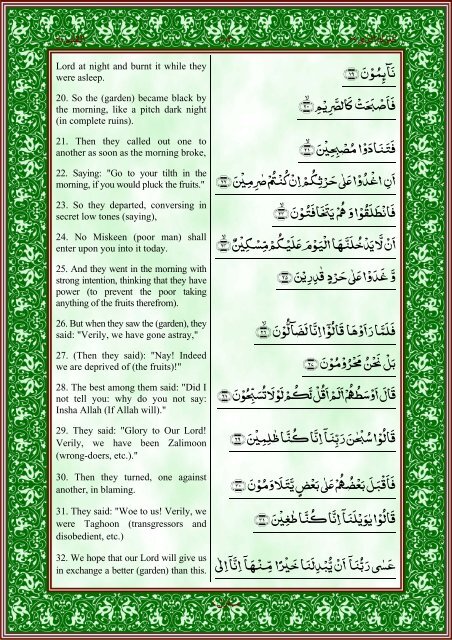 Lord at night and burnt it while they
were asleep.
نَآئِمُوْنَ ﴿۱۹﴾
20. So the (garden) became black by
the morning, like a pitch dark night
(in complete ruins).
فَاَصْبَحَتْ كَالصَّرِيْمِ ﴿۲۰﴾
21. Then they called out one to
another as soon as the morning broke,
فَتَنَادَوْا مُصْبِحِيْنَ ﴿۲۱﴾
22. Saying: "Go to your tilth in the
morning, if you would pluck the fruits."
اَنِ اغْدُوْا عَلٰى حَرْثِكُمْ اِنْ كُنْتُمْ صٰرِمِيْنَ ﴿۲۲﴾
23. So they departed, conversing in
secret low tones (saying),
فَانْطَلَقُوْا وَ هُمْ يَتَخَافَتُوْنَ ﴿۲۳﴾
24. No Miskeen (poor man) shall
enter upon you into it today.
اَنْ لَّا يَدْخُلَنَّهَا الْيَوْمَ عَلَيْكُمْ مِّسْكِيْنٌ ﴿۲۴﴾
25. And they went in the morning with
strong intention, thinking that they have
power (to prevent the poor taking
anything of the fruits therefrom).
وَّ غَدَوْا عَلٰى حَرْدٍ قٰدِرِيْنَ ﴿۲۵﴾
26. But when they saw the (garden), they
said: "Verily, we have gone astray,"
فَلَمَّا رَاَوْهَا قَالُوْۤا اِنَّا لَضَآلُّوْنَ ﴿۲۶﴾
27. (Then they said): "Nay! Indeed
we are deprived of (the fruits)!"
بَلْ نَحْنُ مَحْرُوْمُوْنَ ﴿۲۷﴾
28. The best among them said: "Did I
not tell you: why do you not say:
Insha Allah (If Allah will)."
قَالَ اَوْسَطُهُمْ اَلَمْ اَقُلْ لَّكُمْ لَوْ لَا تُسَبِّحُوْنَ ﴿۲۸﴾
29. They said: "Glory to Our Lord!
Verily, we have been Zalimoon
(wrong-doers, etc.)."
قَالُوْا سُبْحٰنَ رَبِّنَاۤ اِنَّا كُنَّا ظٰلِمِيْنَ ﴿۲۹﴾
30. Then they turned, one against
another, in blaming.
فَاَقْبَلَ بَعْضُهُمْ عَلٰى بَعْضٍ يَّتَلَاوَمُوْنَ ﴿۳۰﴾
31. They said: "Woe to us! Verily, we
were Taghoon (transgressors and
disobedient, etc.)
قَالُوْا يٰوَيْلَنَاۤ اِنَّا كُنَّا طٰغِيْنَ ﴿۳۱﴾
32. We hope that our Lord will give us
in exchange a better (garden) than this.
عَسٰى رَبُّنَاۤ اَنْ يُّبْدِلَنَا خَيْرًا مِّنْهَاۤ اِنَّاۤ اِلٰى